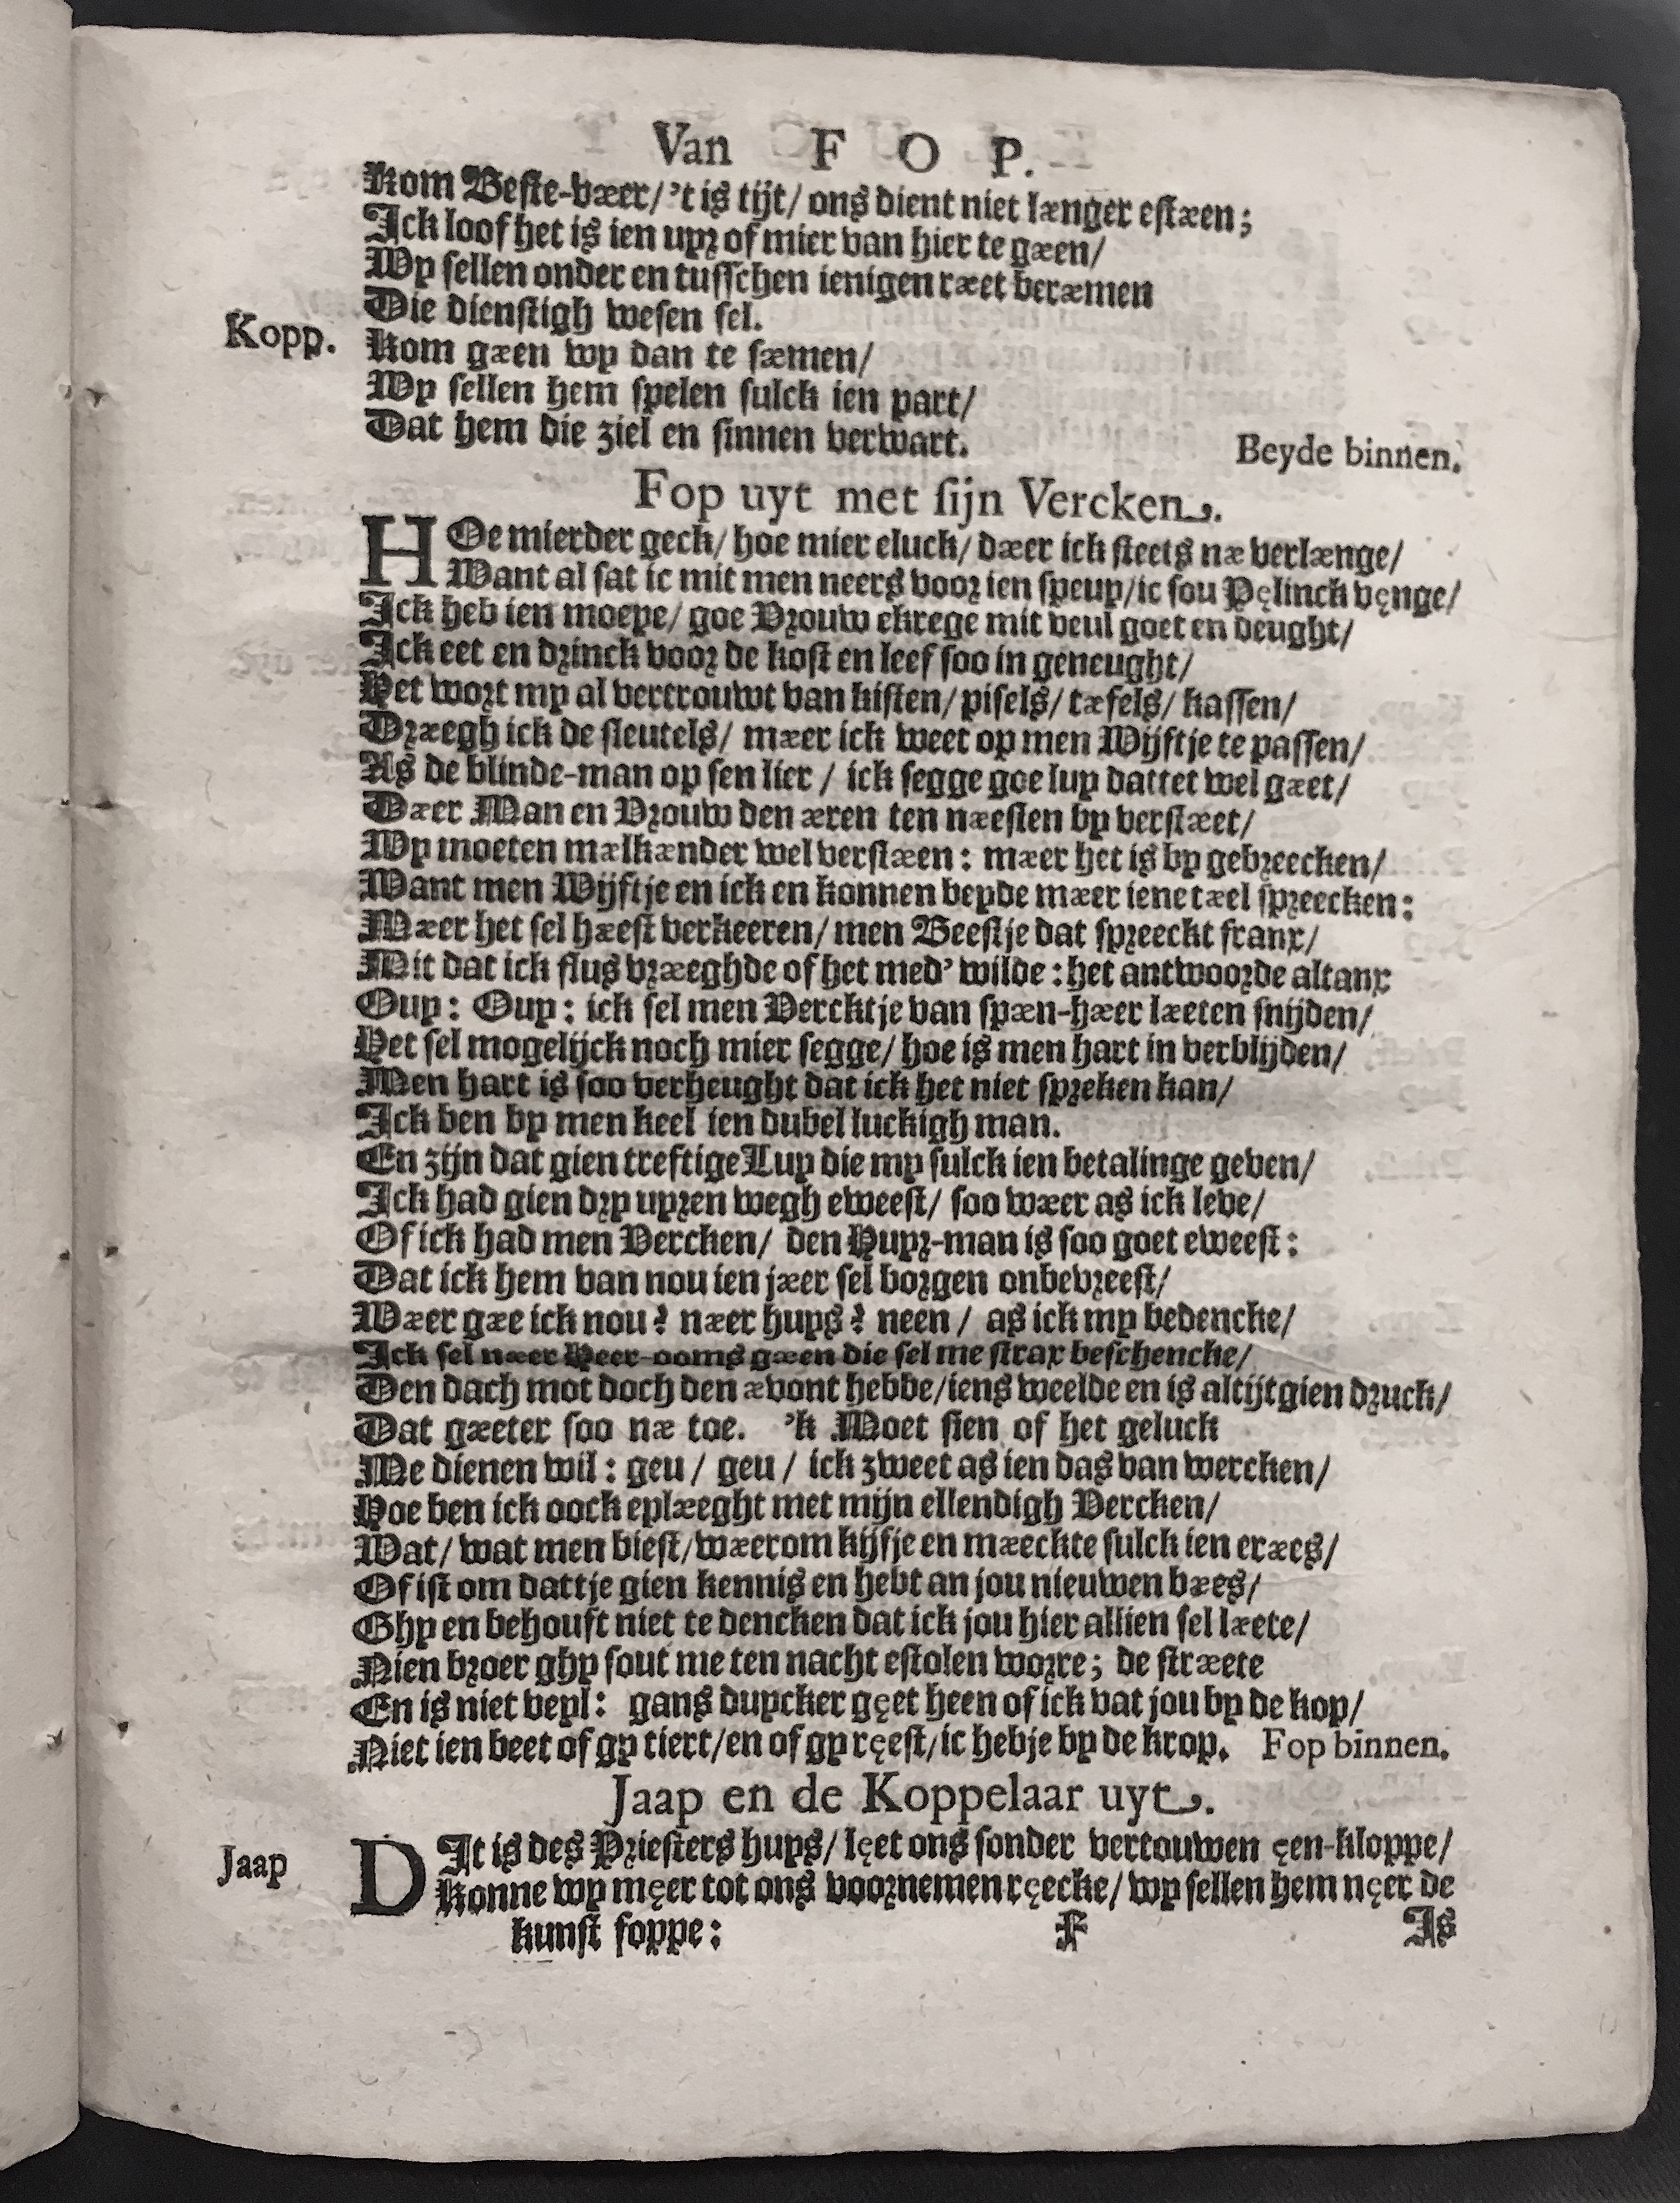 Van F O P.
Kom Beste-væer/ 't is tijt/ ons dient niet længer estæen;
Ick loof het is ien uyr of mier van hier te gæen/
Wy sellen onder en tusschen ienigen ræet beræmen
Die dienstigh wesen sel.
Kopp. Kom gæen wy dan te sæmen/
Wy sellen hem spelen sulck ien part/
Dat hem die ziel en sinnen verwart. Beyde binnen.
Fop uyt met sijn Vercken.
HOe mierder geck/ hoe mier eluck/ dæer ick steets næ verlænge/
Want al sat ic mit men neers voor ien speuy/ic sou Pęlinck vęnge/
Ick heb ien moeye/ goe Vrouw ekrege mit veul goet en deught/
Ick eet en drinck voor de kost en leef soo in geneught/
Het wort my al vertrouwt van kisten/ pisels/ tæfels/ kassen/
Dræegh ick de sleutels/ mæer ick weet op men Wijftje te passen/
As de blinde-man op sen lier / ick segge goe luy dattet wel gæet/
Dæer Man en Vrouw den æren ten næesten by verstæet/
Wy moeten mælkænder wel verstæen: mæer het is by gebreecken/
Want men Wijftje en ick en konnen beyde mæer iene tæel spreecken:
Mæer het sel hæest verkeeren/ men Beestje dat spreeckt franx/
Mit dat ick flus vræeghde of het med' wilde: het antwoorde altanx
Ouy: Ouy: ick sel men Vercktje van spæn-hæer læeten snijden/
Het sel mogelijck noch mier segge/ hoe is men hart in verblijden/
Men hart is soo verheught dat ick het niet spreken kan/
Ick ben by men keel ien dubel luckigh man.
En zijn dat gien treftige Luy die my sulck ien betalinge geven/
Ick had gien dry uyren wegh eweest/ soo wæer as ick leve/
Of ick had men Vercken/ den Huyr-man is soo goet eweest:
Dat ick hem van nou ien jæer sel borgen onbevreest/
Wæer gæe ick nou? næer huys? neen / as ick my bedencke/
Ick sel næer Heer-ooms gæen die sel me strax beschencke/
Den dach mot doch den ævont hebbe/iens weelde en is altijt gien druck/
Dat gæeter soo næ toe. 'k Moet sien of het geluck
Me dienen wil: geu / geu / ick zweet as ien das van wercken/
Hoe ben ick oock eplæeght met mijn ellendigh Vercken/
Wat/ wat men biest/wæerom kijfje en mæeckte sulck ien eræes/
Of ist om dattje gien kennis en hebt an jou nieuwen bæes/
Ghy en behouft niet te dencken dat ick jou hier allien sel læete/
Nien broer ghy sout me ten nacht estolen worre; de stræete
En is niet veyl: gans duycker gęet heen of ick vat jou by de kop/
Niet ien beet of gy tiert/en of gy ręest/ic hebje by de krop. Fop binnen.
Jaap en de Koppelaar uyt.
Jaap DIt is des Priesters huys/ lęet ons sonder vertouwen ęen-kloppe/
Konne wy męer tot ons voornemen ręecke/ wy sellen hem nęer de
kunst foppe: F Is